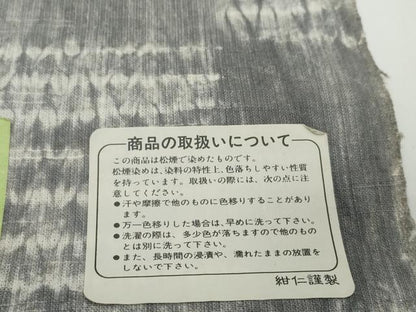 商品の取扱いについて
この商品は松煙で染めたものです。
松煙染めは、染料の特性上、色落ちしやすい性質
を持っています。取扱いの際には、次の点に注
意してください。
●汗や摩擦で他のものに色移りすることがあり
ます。
●万一色移りした場合は、早めに洗って下さい。
●洗濯の際は、多少色が落ちますので他のもの
とは別に洗って下さい。
●また、長時間の浸漬や、濡れたままの放置を
しないで下さい。
紺仁謹製